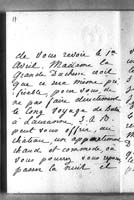 de vous revoir le 1er
Avril. Madame la
Grande Duchesse croit
que ce sera même pré-
férable pour vous de
ne pas faire directement
le long voyage de
à Lausanne. S. A. R.
peut vous offrir, au
château, un appartement
chaud et commode où
vous pourrez vous reposer,
passer la nuit et